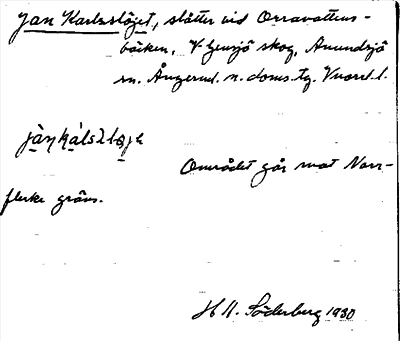 Jan Karlsslöjet, slåtter vid Orravattens-
bäcken, V. Gensjö skog, Anundsjö
sn. Ångerml. n. doms. tg. Vnorrl. l.
Området går mot Norr-
flärke gräns.
H H. Söderberg 1930